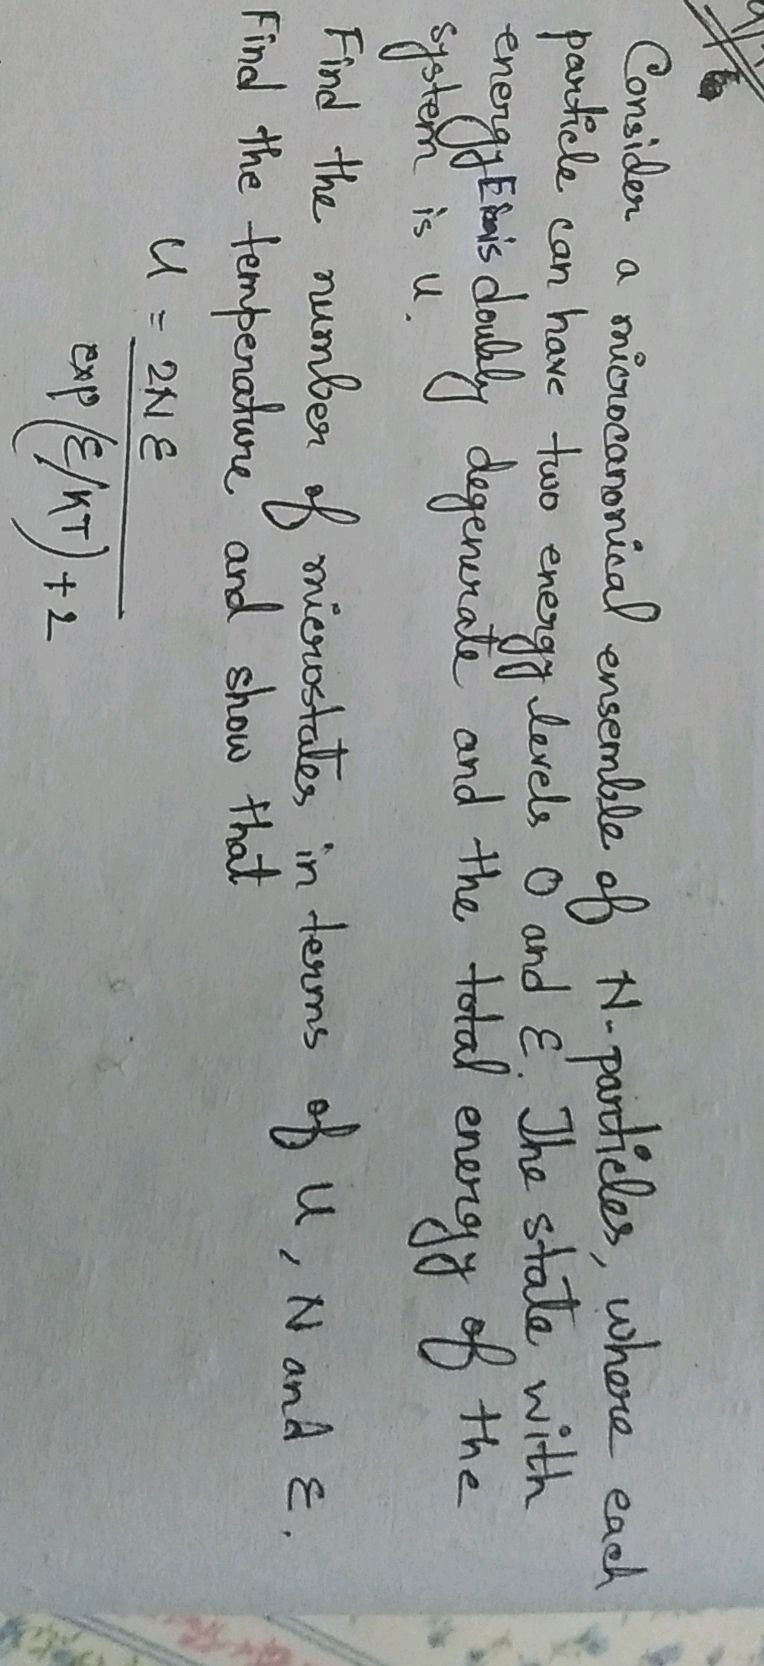 Consider a microcanonical ensemble of N-particles, where each
particle can have two energy levels 0 and ε. The state with
energy E is doubly degenerate and the total energy of the
system is U.
Find the number of microstates in terms of U, N and ε.
Find the temperature and show that
U = 2Nε
exp(ε/KT) + 2